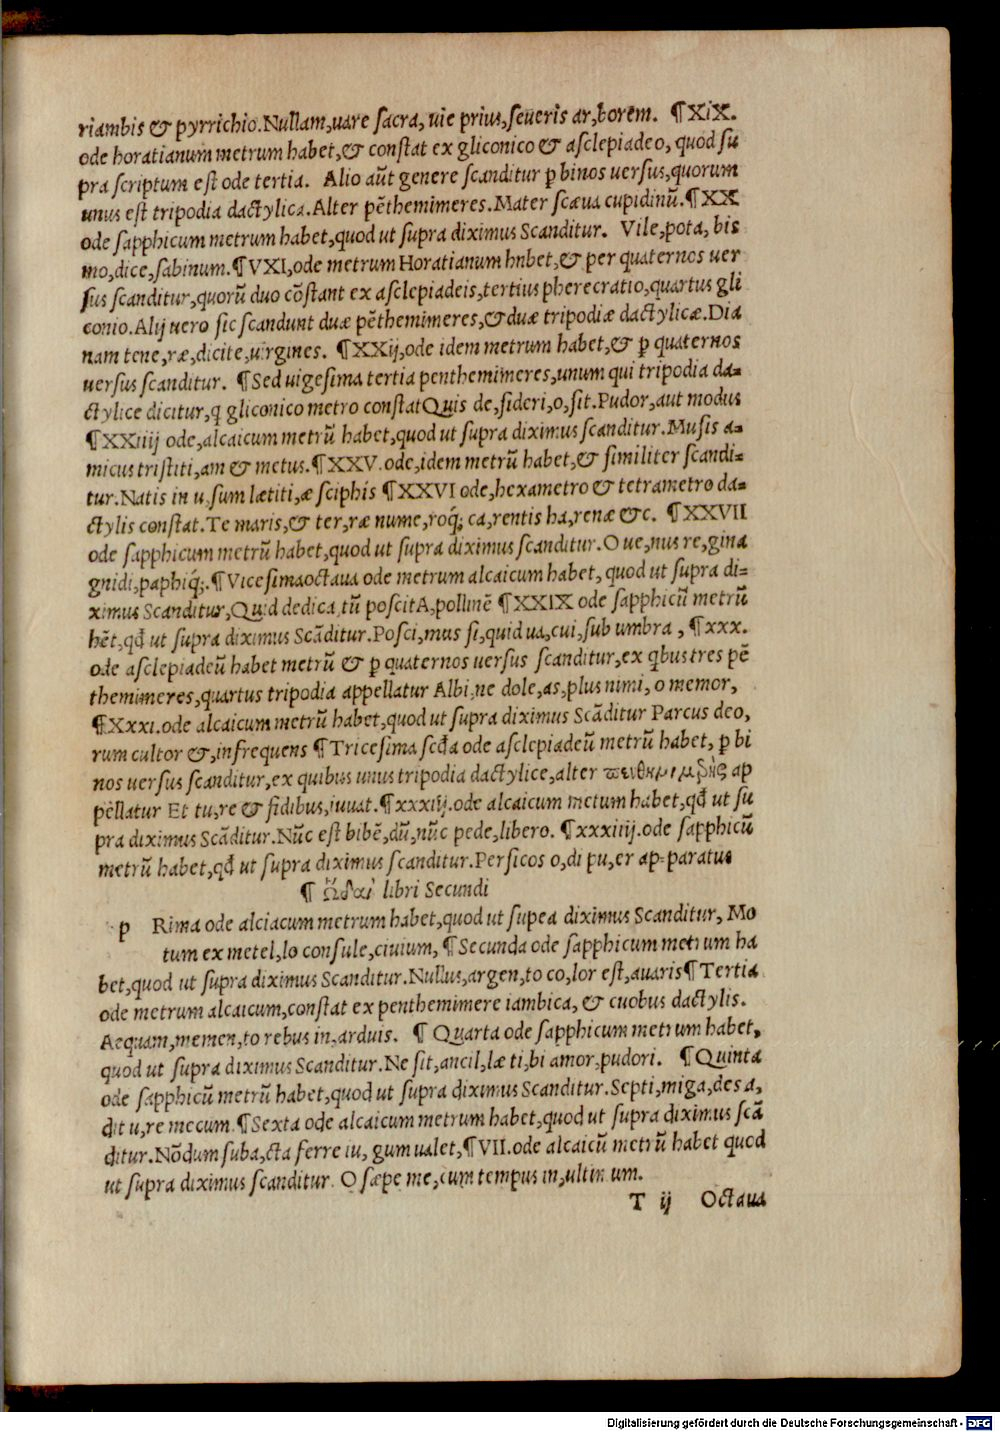 riambis & pyrrichio.Nullam,uare ſacra, uie prius,ſeueris ar,borem. ¶XiX.
ode horatianum metrum habet,& conſtat ex gliconico & aſclepiadeo, quod ſu
pra ſcriptum eſt ode tertia. Alio aũt genere ſcanditur ꝑ binos uerſus,quorum
unus eſt tripodia dactylica.Alter pẽthemimeres.Mater ſcæua cupidinũ.¶XX
ode ſapphicum metrum habet,quod ut ſupra diximus Scanditur. Vile,pota, bis
mo,dice,ſabinum.¶VXI,ode metrum Horatianum hnbet,& per quaternos uer
ſus ſcanditur,quorũ duo cõſtant ex aſclepiadeis,tertius pherecratio,quartus gli
conio.Alij uero ſic ſcandunt duæ pẽthemimeres,& duæ tripodiæ dactylicæ.Dia
nam tene,ræ,dicite,uirgines. ¶XXij,ode idem metrum habet,& ꝑ quaternos
uerſus ſcanditur. ¶Sed uigeſima tertia penthemimeres,unum qui tripodia da=
ctylice dicitur,ꝗ gliconico metro conſtatQuis de,ſideri,o,ſit.Pudor,aut modus
¶XXiiij ode,alcaicum metrũ habet,quod ut ſupra diximus ſcanditur.Muſis a=
micus triſtiti,am & metus.¶XXV.ode,idem metrũ habet,& ſimiliter ſcandi=
tur.Natis in u,ſum lætiti,æ ſciphis ¶XXVI ode,hexametro & tetrametro da=
ctylis conſtat.Te maris,& ter,ræ nume,roq́; ca,rentis ha,renæ &c. ¶XXVII
ode ſapphicum metrũ habet,quod ut ſupra diximus ſcanditur.O ue,nus re,gina
gnidi,paphiq́;.¶Viceſimaoctaua ode metrum alcaicum habet, quod ut ſupra di=
ximus Scanditur,Quid dedica,tũ poſcitA,pollinẽ ¶XXIX ode ſapphicũ metrũ
hẽt,qđ ut ſupra diximus Scãditur.Poſci,mus ſi,quid ua,cui,ſub umbra , ¶xxx.
ode aſclepiadeũ habet metrũ & ꝑ quaternos uerſus ſcanditur,ex qbus tres pẽ
themimeres,quartus tripodia appellatur Albi,ne dole,as,plus nimi, o memor,
¶Xxxi.ode alcaicum metrũ habet,quod ut ſupra diximus Scãditur Parcus deo,
rum cultor &,infrequens ¶Triceſima ſcđa ode aſclepiadeũ metrũ habet, ꝑ bi
nos uerſus ſcanditur,ex quibus unus tripodia dactylice,alter ap
pẽllatur Et tu,re & fidibus,iuuat.¶xxxiij.ode alcaicum metum habet,qđ ut ſu
pra diximus Scãditur.Nũc eſt bibẽ,dũ,nũc pede,libero. ¶xxxiiij.ode ſapphicũ
metrũ habet,qđ ut ſupra diximus ſcanditur.Perſicos o,di pu,er ap=paratus
¶ Ὠδαὶ libri Secundi
p Rima ode alciacum metrum habet,quod ut ſupea diximus Scanditur, Mo
tum ex metel,lo conſule,ciuium, ¶Secunda ode ſapphicum metrum ha
bet,quod ut ſupra diximus Scanditur.Nullus,argen,to co,lor eſt,auaris¶Tertia
ode metrum alcaicum,conſtat ex penthemimere iambica, & cuobus dactylis.
Aequam,memen,to rebus in,arduis. ¶ Quarta ode ſapphicum metrum habet,
quod ut ſupra diximus Scanditur.Ne ſit,ancil,læ ti,bi amor,pudori. ¶Quinta
ode ſapphicũ metrũ habet,quod ut ſupra diximus Scanditur.Septi,miga,des a,
dit u,re mecum.¶Sexta ode alcaicum metrum habet,quod ut ſupra diximus ſcã
ditur.Nõdum ſuba,cta ferre iu, gum ualet,¶VII.ode alcaicũ metrũ habet quod
ut ſupra diximus ſcanditur. O ſæpe me,cum tempus in,ultimum.
T ij Octaua
Digitalisierung gefördert durch die Deutsche Forschungsgemeinschaft - DFG